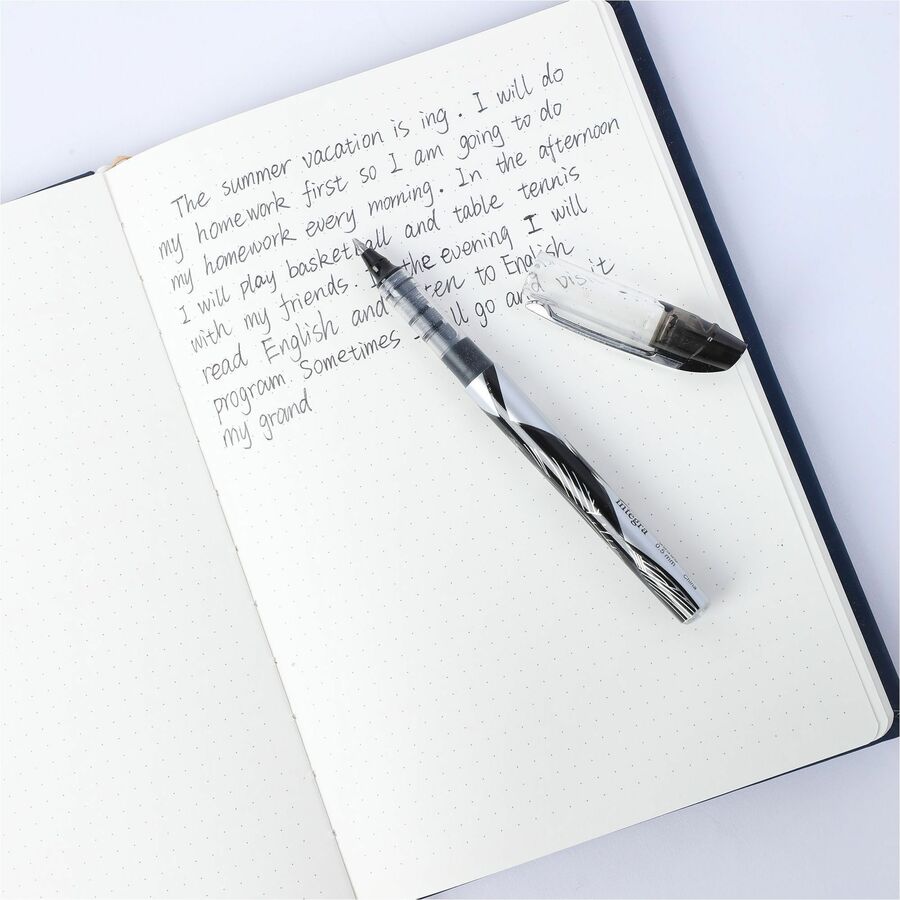 The summer vacation is ing. I will do
my homework first so I am going to do
my homework every morning. In the afternoon
I will play basketball and table tennis
with my friends. In the evening I will
read English and listen to English
program Sometimes I will go and visit
my grand
Integra
0.5 mm
China